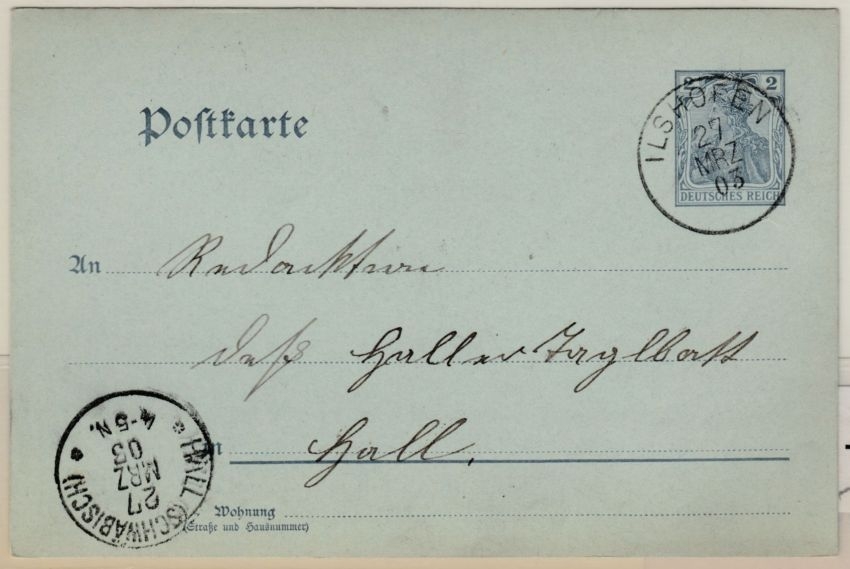 2 2
DEUTSCHES REICH
ILSHOFEN
27
MRZ
03
Postkarte
An Redaktion
deß Haller Tagblatt
in Hall.
Wohnung
(Straße und Hausnummer)
HALL (SCHWÄBISCH)
27
MRZ
03
4-5 N.